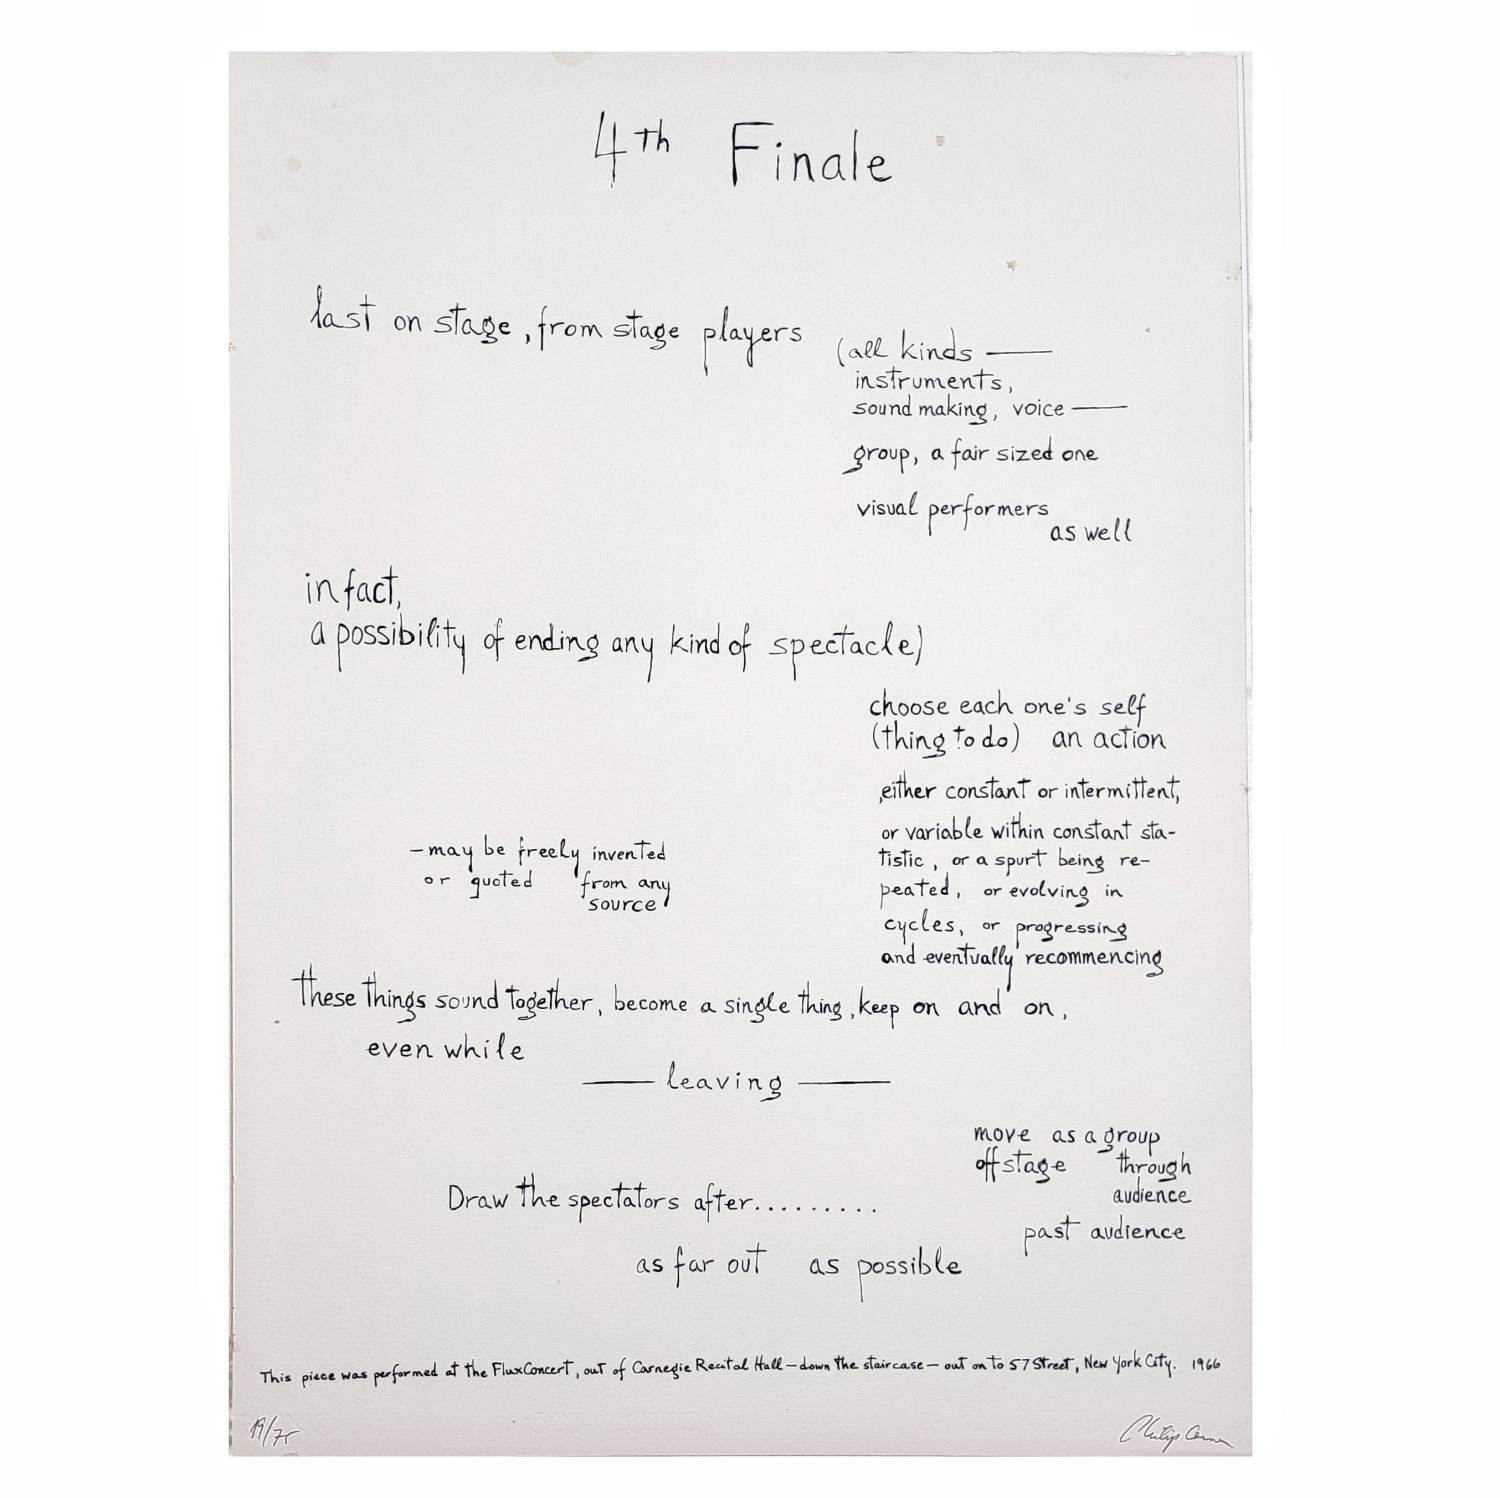 4th Finale
last on stage, from stage players
(all kinds —
instruments,
sound making, voice —
group, a fair sized one
visual performers
as well
in fact,
a possibility of ending any kind of spectacle)
choose each one's self
(thing to do) an action
,either constant or intermittent,
or variable within constant sta-
tistic, or a spurt being re-
peated, or evolving in
cycles, or progressing
and eventually recommencing
—may be freely invented
or quoted from any
source
these things sound together, become a single thing, keep on and on,
even while
— leaving —
move as a group
off stage through
audience
past audience
Draw the spectators after.........
as far out as possible
This piece was performed at the FluxConcert, out of Carnegie Recital Hall — down the staircase — out on to 57 Street, New York City. 1966
19/75
Philip Corner